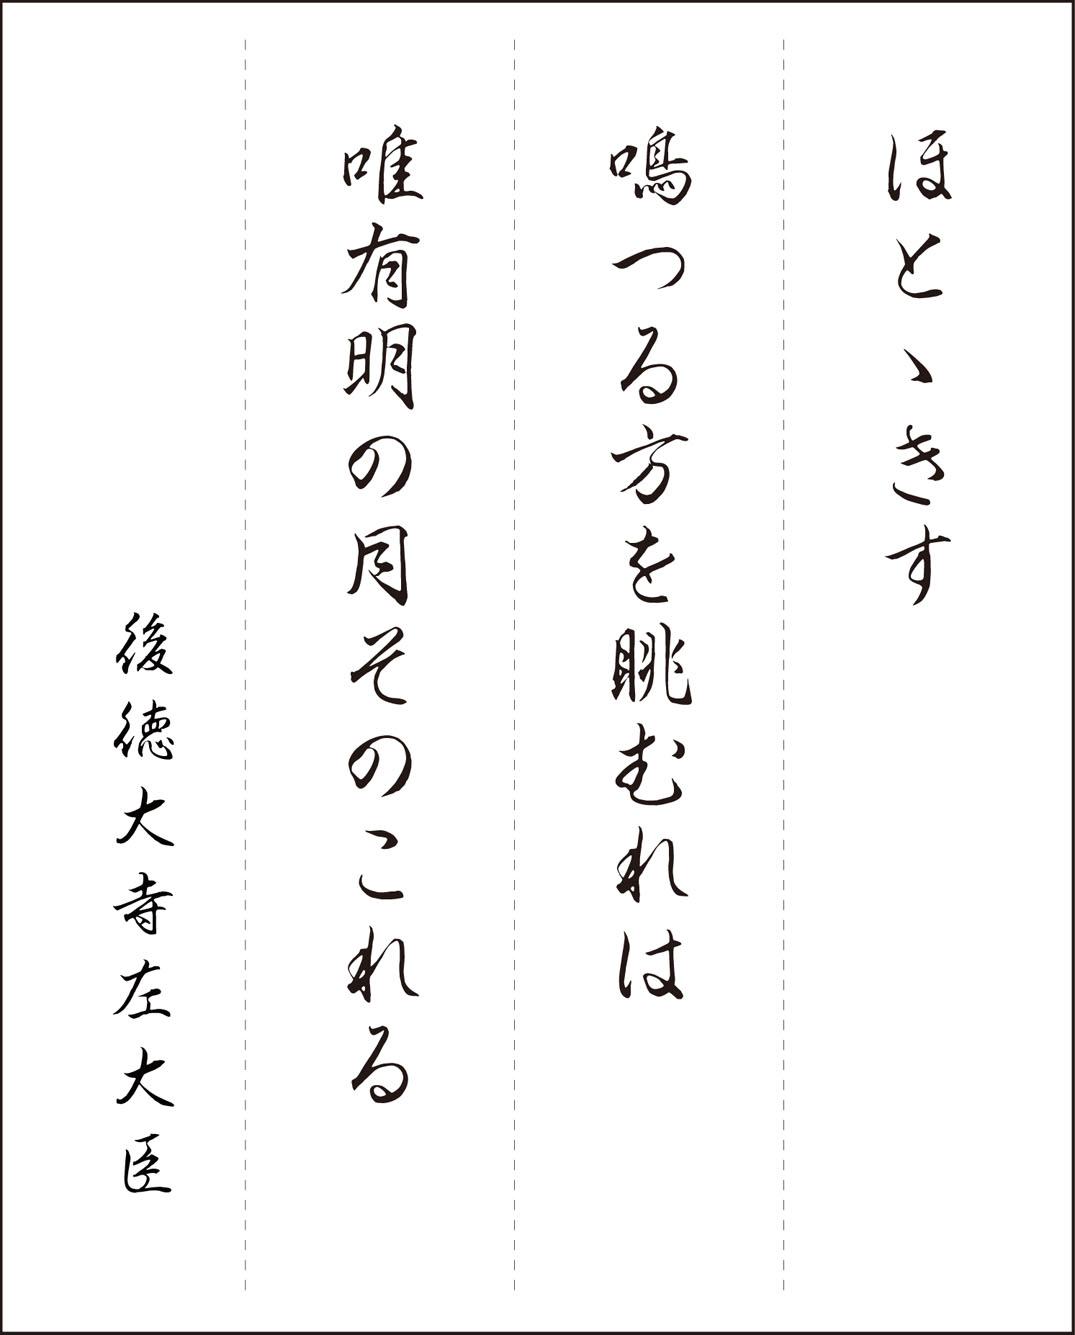 ほとゝきす
鳴つる方を眺むれは
唯有明の月そのこれる
後徳大寺左大臣